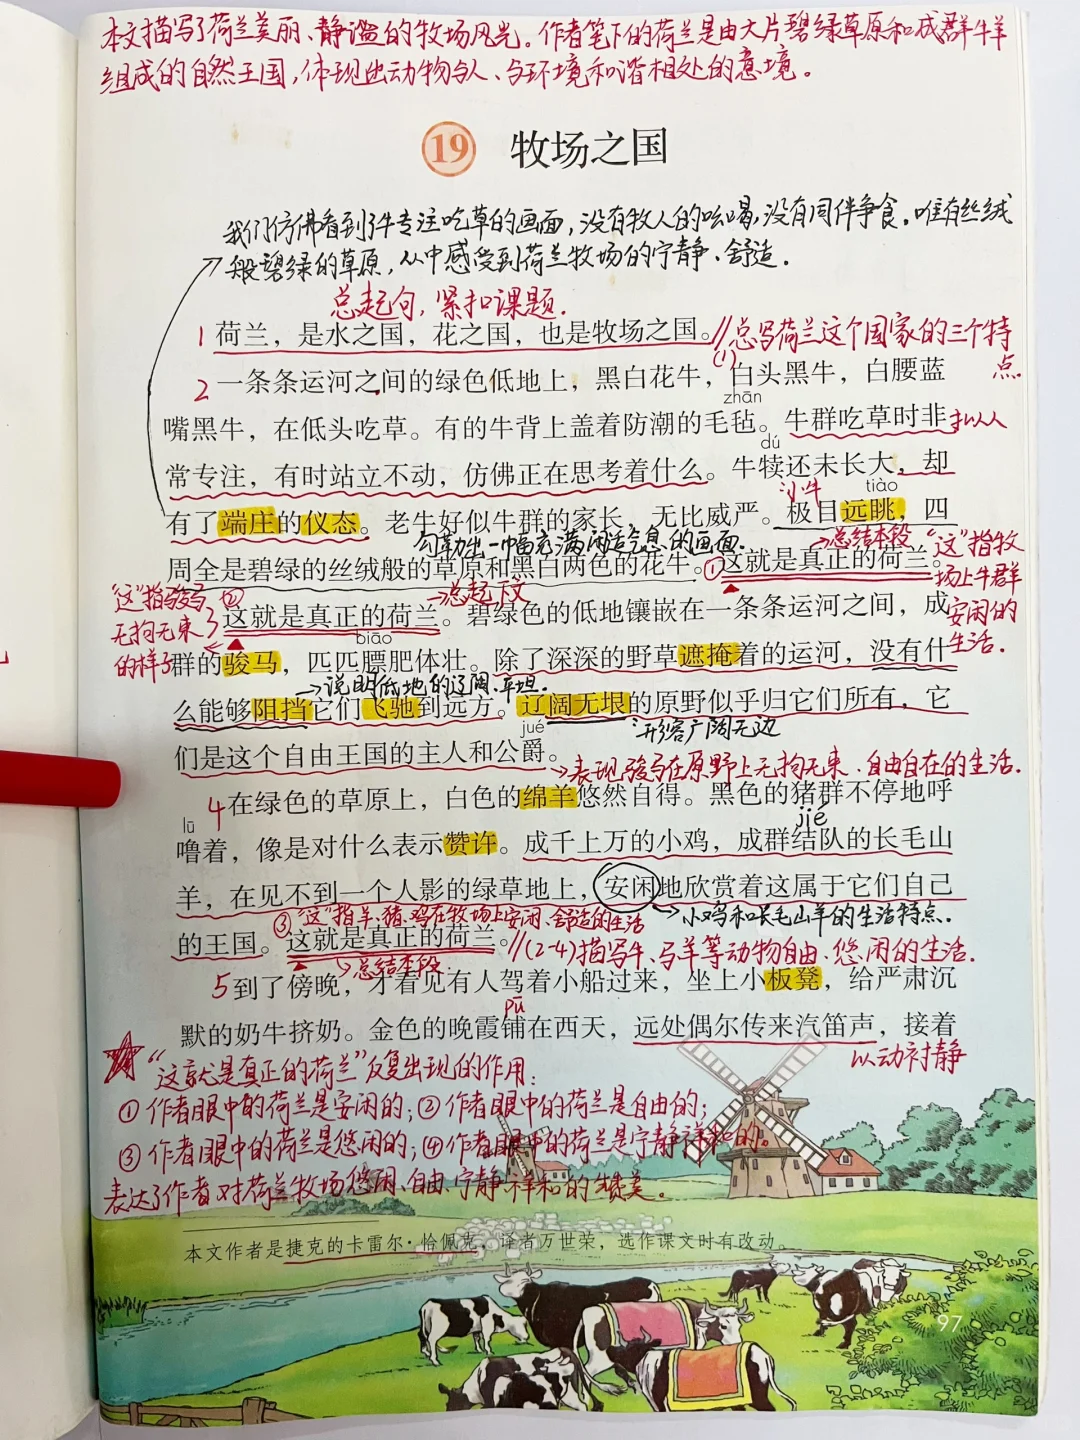 本文描写了荷兰美丽、静谧的牧场风光。作者笔下的荷兰是由大片碧绿草原和成群牛羊
组成的自然王国，体现出动物与人、与环境和谐相处的意境。
19 牧场之国
我们仿佛看到了牛专注吃草的画面，没有牧人的吆喝，没有同伴争食。唯有丝绒
般碧绿的草原，从中感受到荷兰牧场的宁静、舒适。
总起句，紧扣课题。
1 荷兰，是水之国，花之国，也是牧场之国。//总写荷兰这个国家的三个特
(1)
点
2 一条条运河之间的绿色低地上，黑白花牛，白头黑牛，白腰蓝
zhān
嘴黑牛，在低头吃草。有的牛背上盖着防潮的毛毡。牛群吃草时非 拟人
dú
常专注，有时站立不动，仿佛正在思考着什么。牛犊还未长大，却
小牛 tiào
有了端庄的仪态。老牛好似牛群的家长，无比威严。极目远眺，四
勾勒出一幅充满闲适气息的画面。 →总结本段 “这”指牧
周全是碧绿的丝绒般的草原和黑白两色的花牛。①这就是真正的荷兰。 场上牛群
安闲的
生活。
“这”指骏马 ②
无拘无束
的样子
→总起下文
3 这就是真正的荷兰。碧绿色的低地镶嵌在一条条运河之间，成
biāo
群的骏马，匹匹膘肥体壮。除了深深的野草遮掩着的运河，没有什
→说明低地的辽阔、平坦.
么能够阻挡它们飞驰到远方。辽阔无垠的原野似乎归它们所有，它
jué 形容广阔无边
们是这个自由王国的主人和公爵。
→表现骏马在原野上无拘无束、自由自在的生活.
4 在绿色的草原上，白色的绵羊悠然自得。黑色的猪群不停地呼
lū jié
噜着，像是对什么表示赞许。成千上万的小鸡，成群结队的长毛山
羊，在见不到一个人影的绿草地上，安闲地欣赏着这属于它们自己
③“这”指羊、猪、鸡在牧场上安闲、舒适的生活 →小鸡和长毛山羊的生活特点.
的王国。这就是真正的荷兰。//(2-4)描写牛、马羊等动物自由、悠闲的生活.
→总结本段.
5 到了傍晚，才看见有人驾着小船过来，坐上小板凳，给严肃沉
pū
默的奶牛挤奶。金色的晚霞铺在西天，远处偶尔传来汽笛声，接着
以动衬静
“这就是真正的荷兰”反复出现的作用：
①作者眼中的荷兰是安闲的；②作者眼中的荷兰是自由的；
③作者眼中的荷兰是悠闲的；④作者眼中的荷兰是宁静祥和的。
表达了作者对荷兰牧场悠闲、自由、宁静祥和的赞美。
本文作者是捷克的卡雷尔·恰佩克，译者万世荣，选作课文时有改动。
97